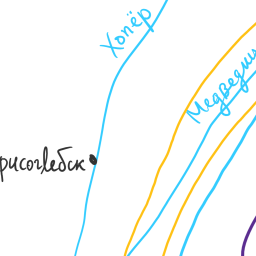 Хопёр
Медведи
рисоглебск